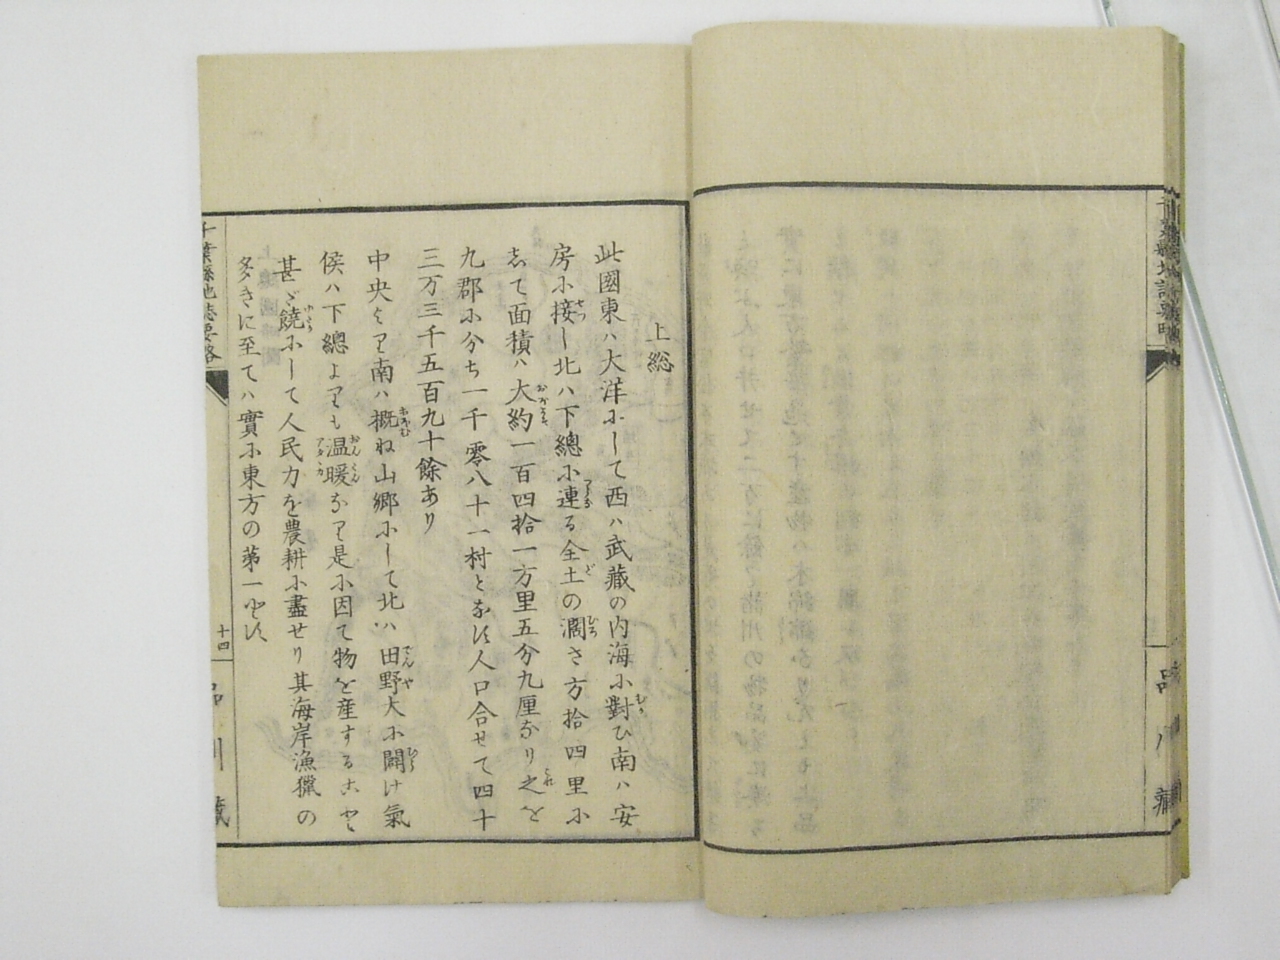 上総
此國東ハ大洋にして西ハ武藏の内海に對ひ南ハ安
房に接し北ハ下總に連る全土の濶さ方拾四里に
志て面積ハ大約一百四拾一方里五分九厘なり之を
九郡に分ち一千零八十一村となす人口合せて四十
三万三千五百九十餘あり
中央より南ハ概ね山郷にして北ハ田野大に闢け氣
侯ハ下總よりも温暖なり是に因て物を産すること
甚ゞ饒にして人民力を農耕に盡せり其海岸漁獵の
多きに至てハ實に東方の第一とす
千葉縣地誌要略
十四
品川藏